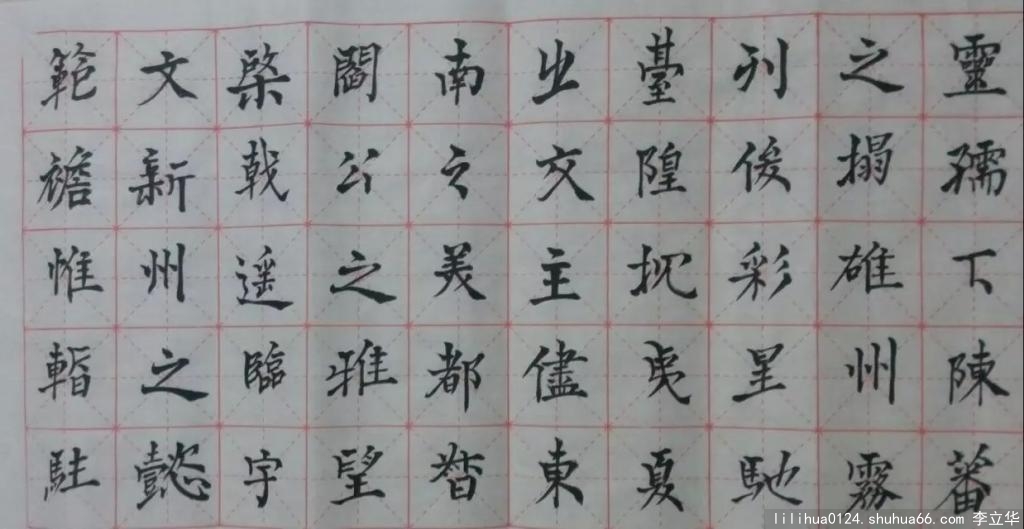 靈孺下陳蕃
之搨雄州霧
列俊彩星馳
臺隍枕夷夏
㞢交主儘東
南之美都督
閻公之雅望
棨戟遥臨宇
文新州之懿
範襜惟暫駐
lilihua0124.shuhua66.com 李立华